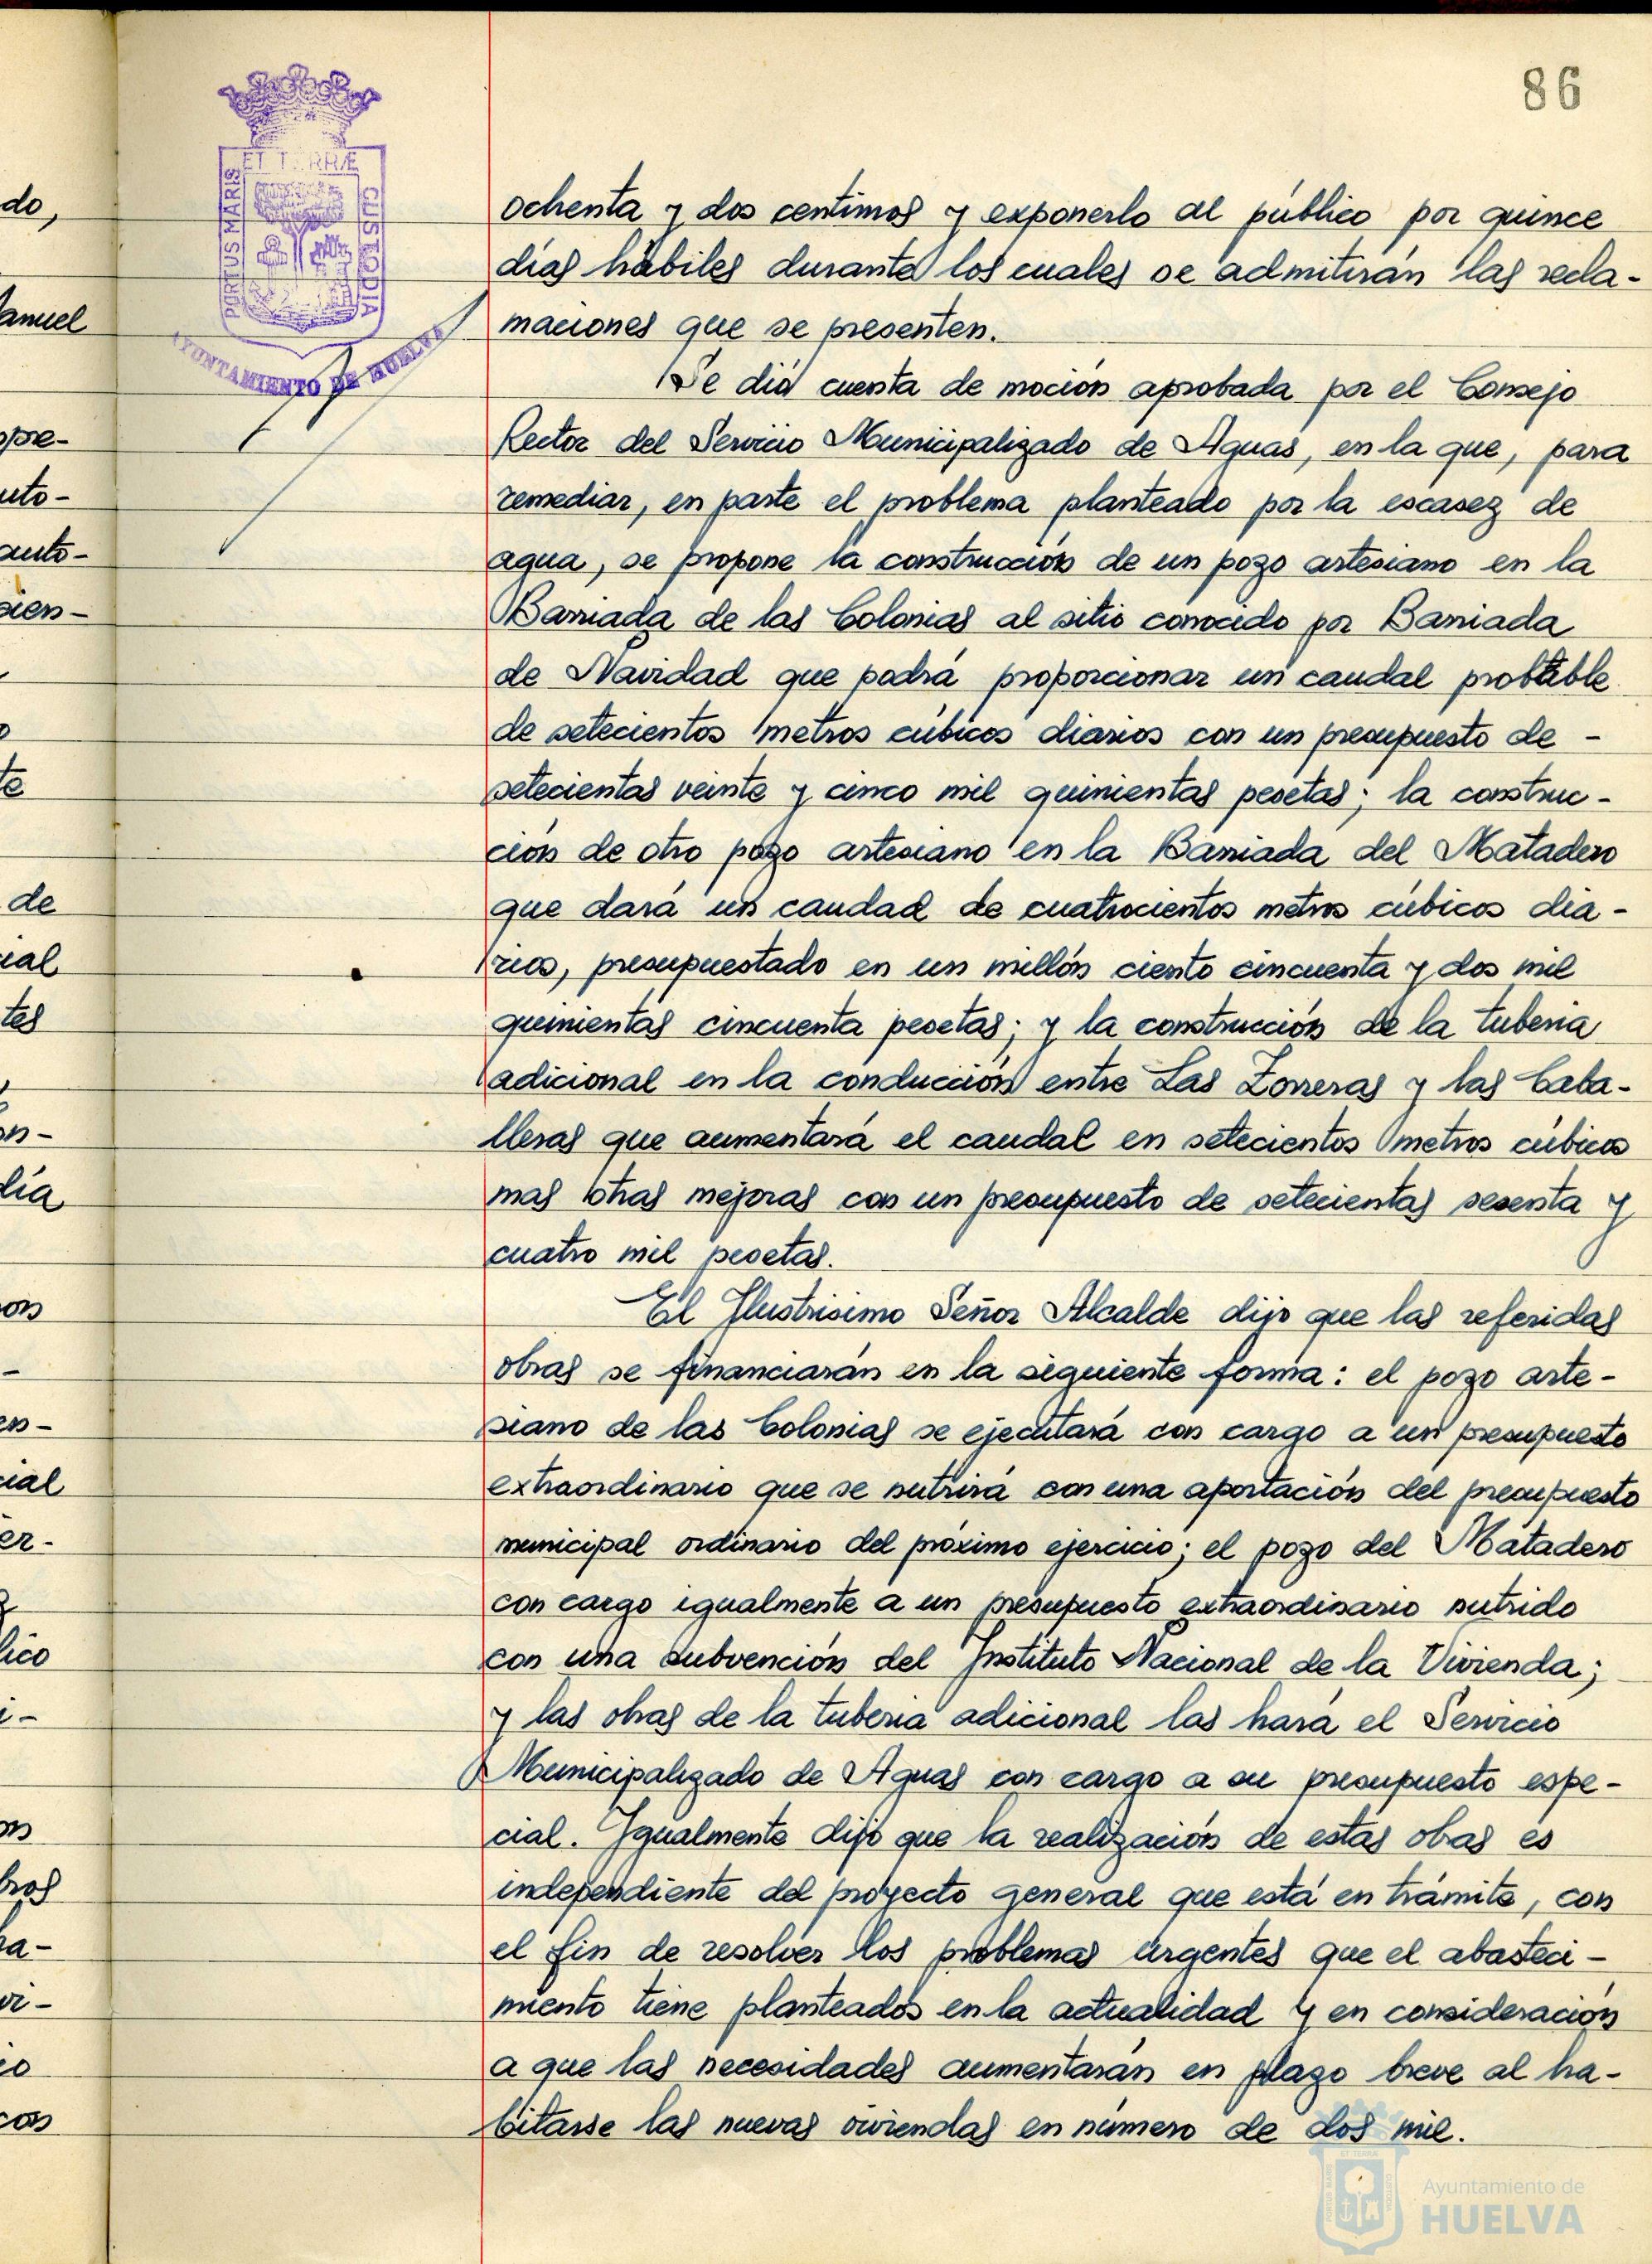 86
ET TERRÆ
PORTUS MARIS
CUSTODIA
AYUNTAMIENTO DE HUELVA
do,
anuel
pre-
uto-
auto-
cien-
o
te
de
cial
tes
on-
día
on
-
en-
cial
er-
lico
i-
on
bros
ra-
vi-
io
con
ochenta y dos centimos y exponerlo al público por quince
días hábiles durante los cuales se admitirán las recla-
maciones que se presenten.
Se dió cuenta de moción aprobada por el Consejo
Rector del Servicio Municipalizado de Aguas, en la que, para
remediar, en parte el problema planteado por la escasez de
agua, se propone la construcción de un pozo artesiano en la
Barriada de las Colonias al sitio conocido por Barriada
de Navidad que podrá proporcionar un caudal probable
de setecientos metros cúbicos diarios con un presupuesto de -
setecientas veinte y cinco mil quinientas pesetas; la construc-
ción de otro pozo artesiano en la Barriada del Matadero
que dará un caudad de cuatrocientos metros cúbicos dia-
rios, presupuestado en un millón ciento cincuenta y dos mil
quinientas cincuenta pesetas; y la construcción de la tuberia
adicional en la conducción entre Las Zorreras y las Caba-
lleras que aumentará el caudal en setecientos metros cúbicos
mas otras mejoras con un presupuesto de setecientas sesenta y
cuatro mil pesetas.
El Ilustrisimo Señor Alcalde dijo que las referidas
obras se financiarán en la siguiente forma: el pozo arte-
siano de las Colonias se ejecutará con cargo a un presupuesto
extraordinario que se nutrirá con una aportación del presupuesto
municipal ordinario del próximo ejercicio; el pozo del Matadero
con cargo igualmente a un presupuesto extraordinario nutrido
con una subvención del Instituto Nacional de la Vivienda;
y las obras de la tuberia adicional las hará el Servicio
Municipalizado de Aguas con cargo a su presupuesto espe-
cial. Igualmente dijo que la realización de estas obras es
independiente del proyecto general que está en trámite, con
el fin de resolver los problemas urgentes que el abasteci-
miento tiene planteados en la actualidad y en consideración
a que las necesidades aumentarán en plazo breve al ha-
bitarse las nuevas viviendas en número de dos mil.
Ayuntamiento de
HUELVA